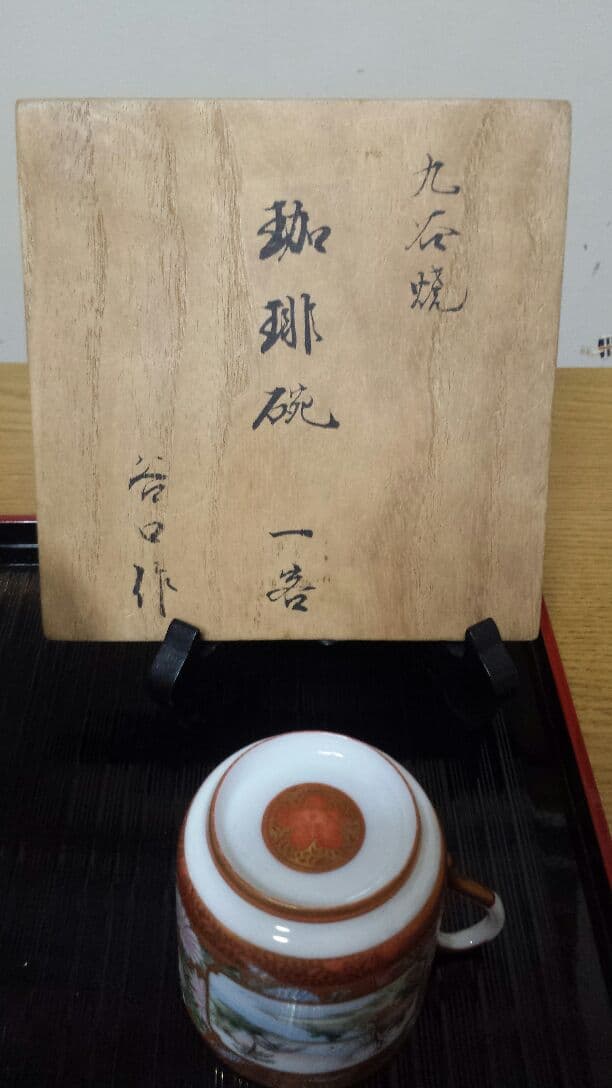 九谷焼
珈琲碗 一客
谷口作